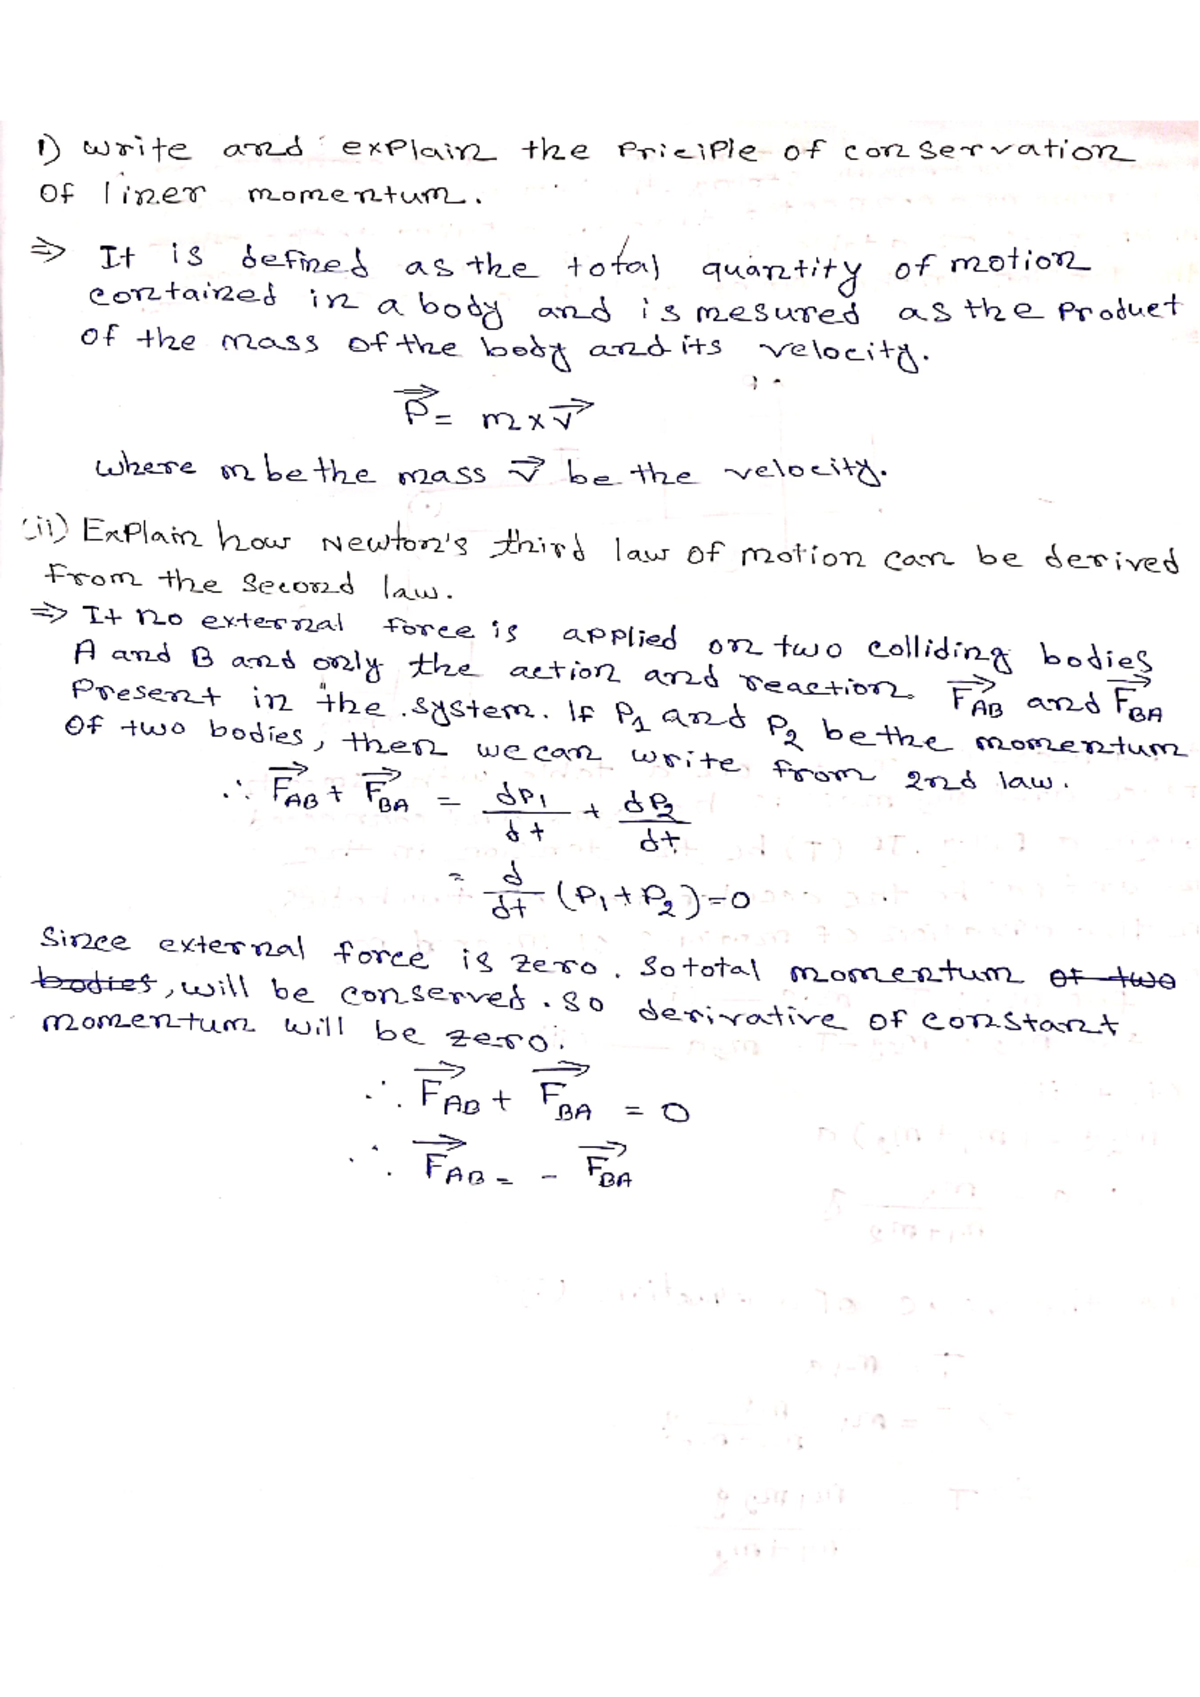 1) write and explain the Priciple of conservation
of liner momentum.
⇒ It is defined as the total quantity of motion
contained in a body and is mesured as the Product
of the mass of the body and its velocity.
P⃗ = m x v⃗
where m be the mass v⃗ be the velocity.
(ii) Explain how Newton's third law of motion can be derived
from the second law.
⇒ It no external force is applied on two colliding bodies
A and B and only the action and reaction. F⃗AB and F⃗BA
Present in the system. If P1 and P2 be the momentum
Of two bodies, then we can write from 2nd law.
∴ F⃗AB + F⃗BA = dP1/dt + dP2/dt
= d/dt (P1 + P2) = 0
Since external force is zero. So total momentum of two
bodies, will be conserved. so derivative of constant
momentum will be zero.
∴ F⃗AB + F⃗BA = 0
∴ F⃗AB = - F⃗BA